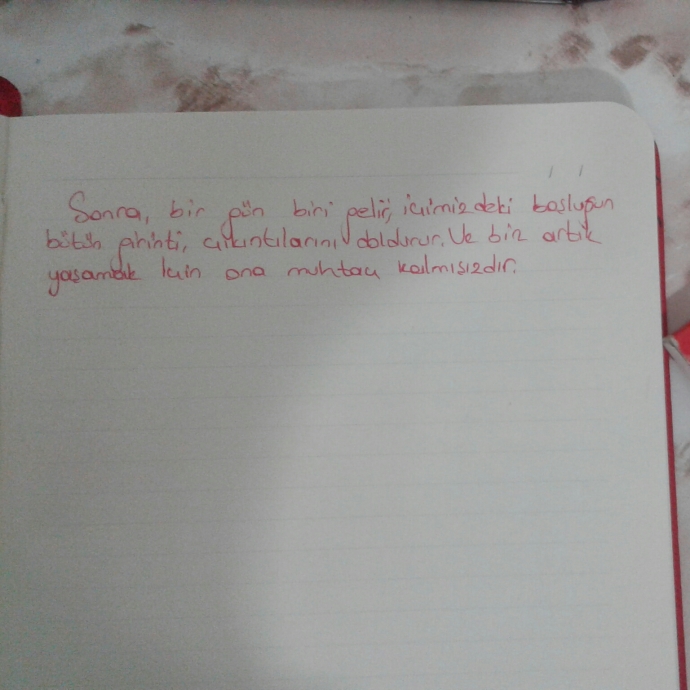 Sonra, bir gün biri gelir, içimizdeki boşluğun
bütün girinti, çıkıntılarını doldurur. Ve biz artık
yaşamak için ona muhtaç kalmışızdır.